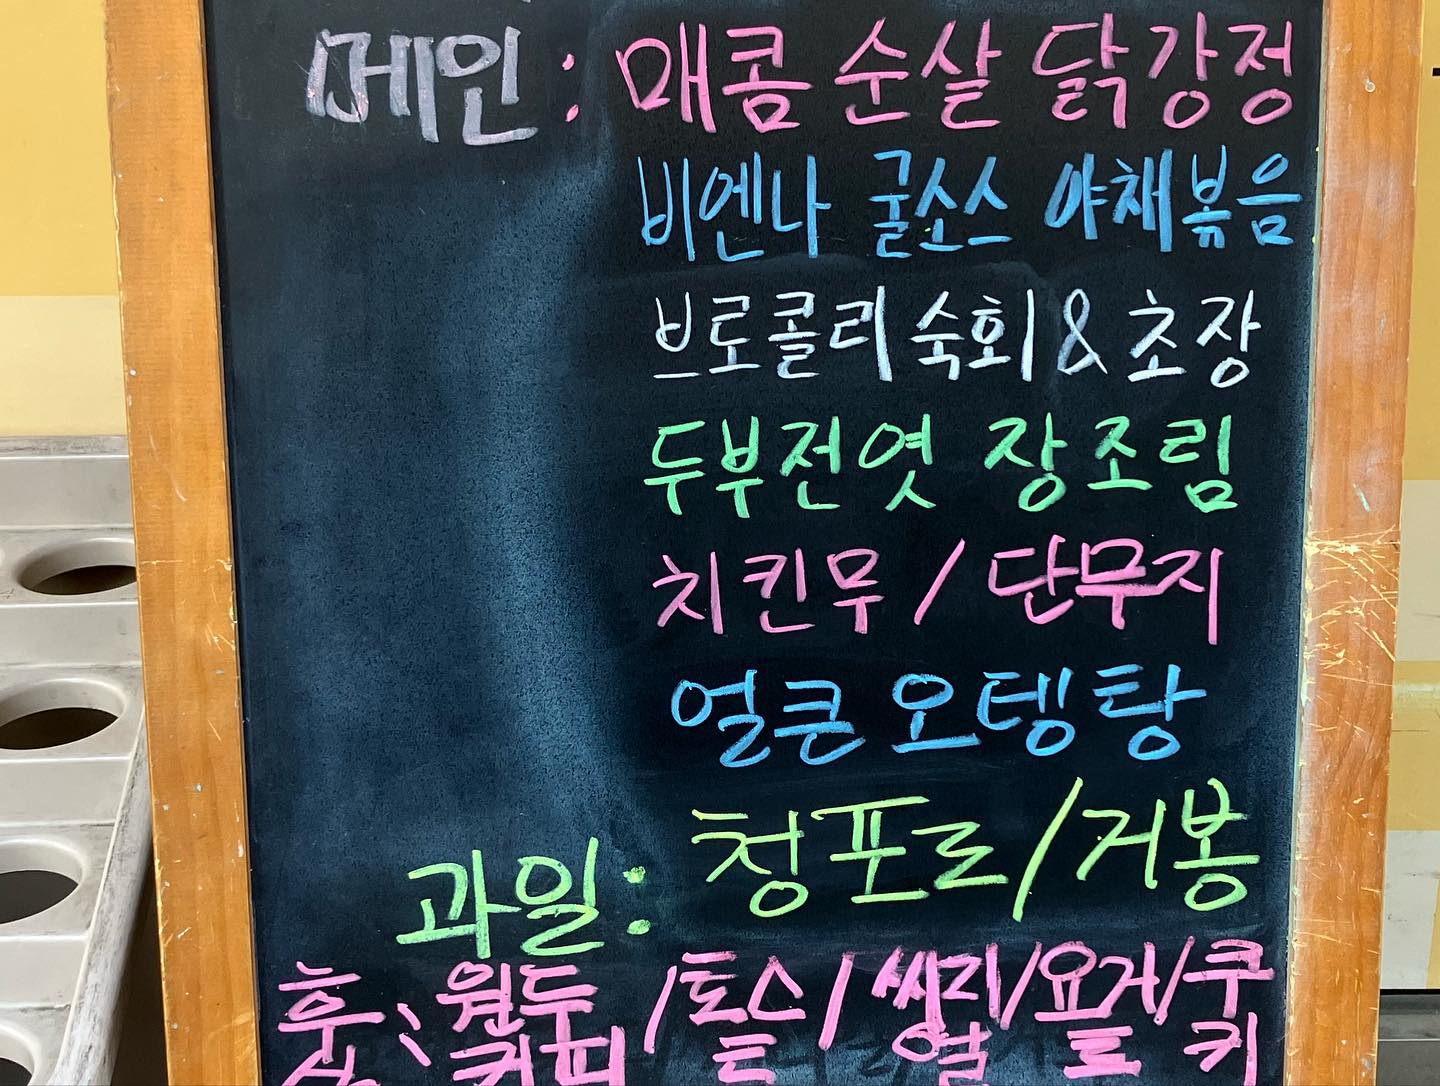 메인 : 매콤 순살 닭강정
비엔나 굴소스 야채볶음
브로콜리 숙회 & 초장
두부전엿 장조림
치킨무 / 단무지
얼큰 오뎅탕
과일 : 청포도 / 거봉
후식 : 원두커피 / 토스트 / 씨리얼 / 요거트 / 쿠키